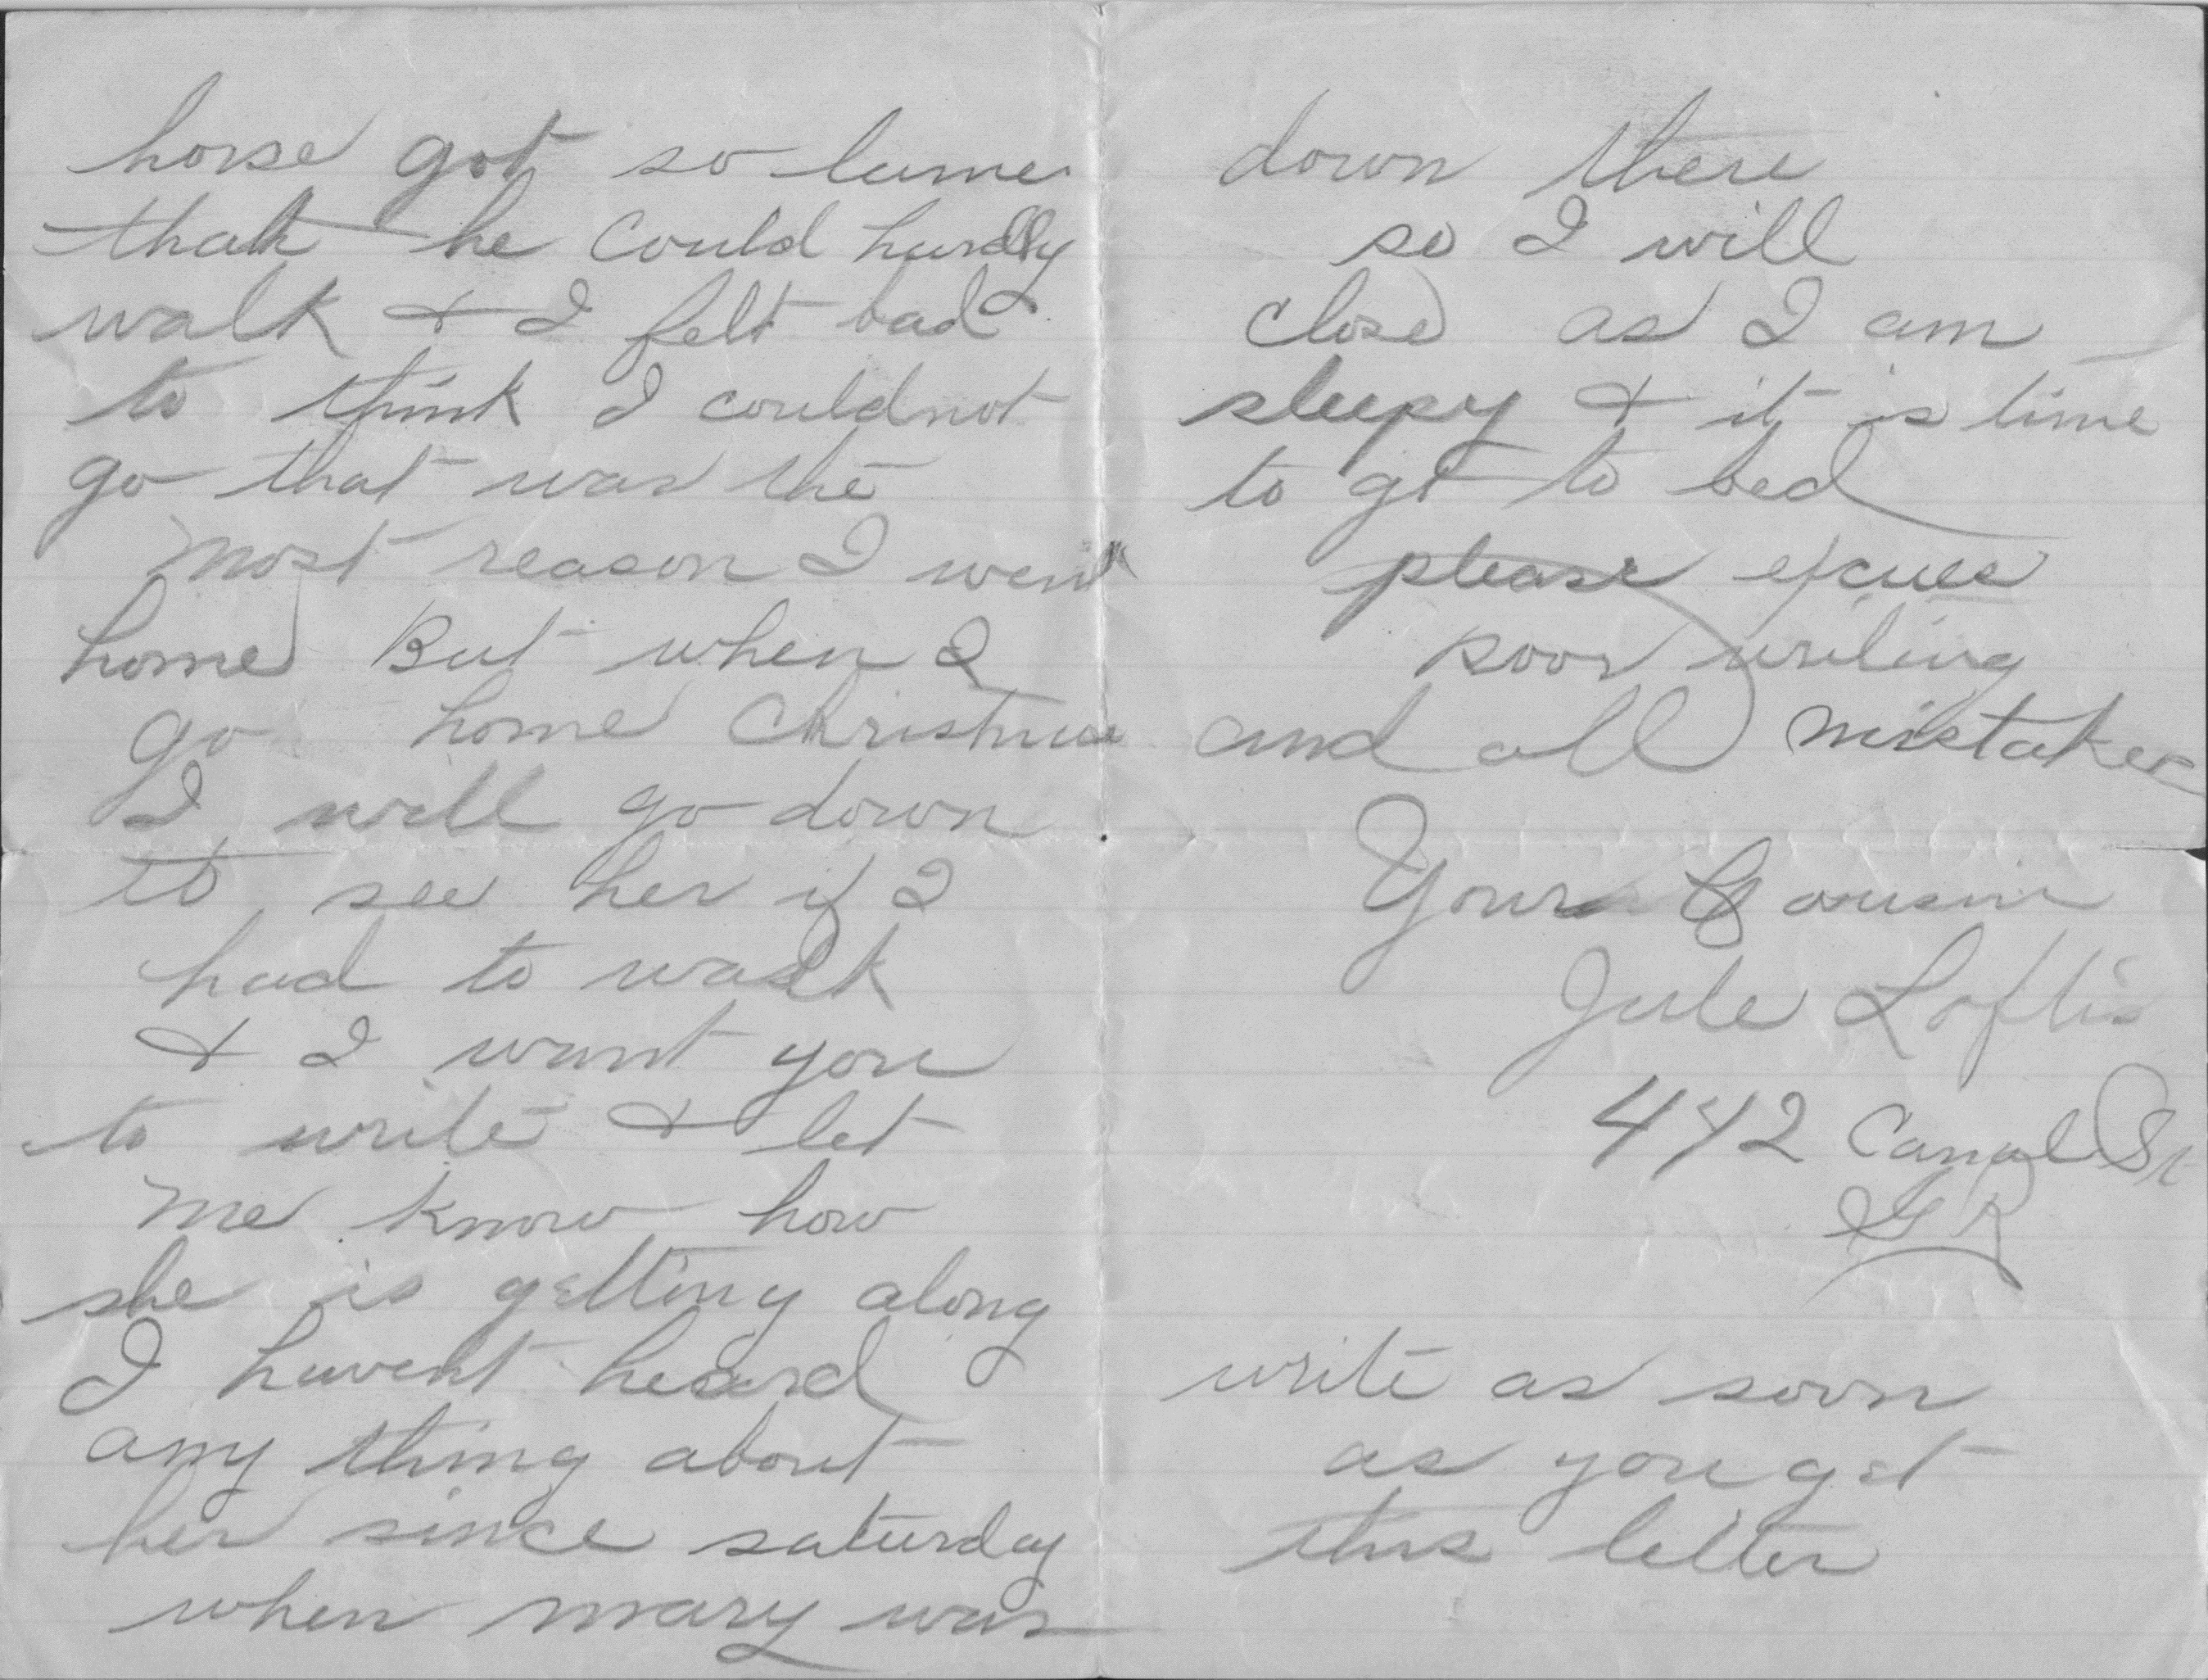 horse got so lame
that he could hardly
walk & I felt bad
to think I couldnot
go that was the
most reason I went
home But when I
go home Christmas
I will go down
to see her if I
had to walk
& I want you
to write & let
me know how
she is getting along
I havent heard
any thing about
her since saturday
when mary was
down there
so I will
close as I am
sleepy & it is time
to go to bed
please excues
poor writing
and all mistakes
Yours Cousin
Jule Loftis
442 Canal St
G R
write as soon
as you get
this letter